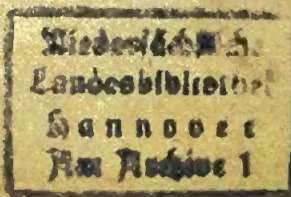 Niedersächsische
Landesbibliothek
Hannover
Am Archive 1